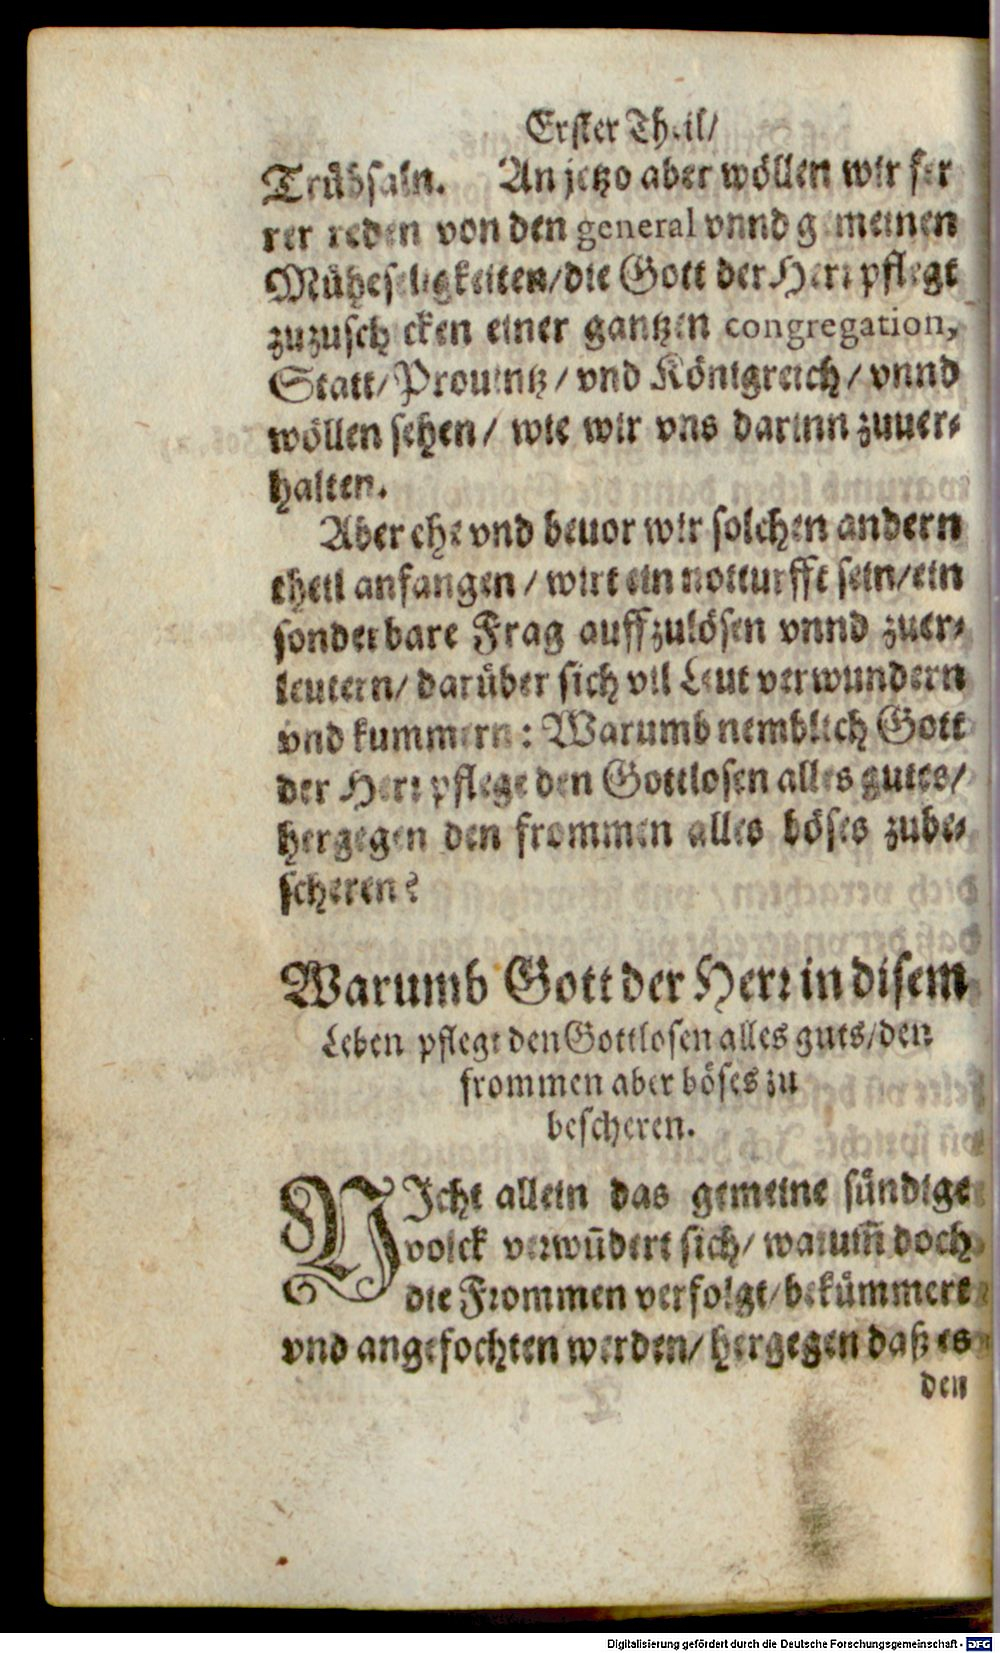 Erster Theil/
Trübsaln. An jetzo aber wöllen wir fer
rer reden von den general vnnd gemeinen
Müheseligkeiten/die Gott der Herr pflegt
zuzuschicken einer gantzen congregation,
Statt/Prouintz/vnd Königreich/vnnd
wöllen sehen/wie wir vns darinn zuuer-
halten.
Aber ehe vnd beuor wir solchen andern
theil anfangen/wirt ein notturfft sein/ein
sonderbare Frag auffzulösen vnnd zuer-
leutern/darüber sich vil Leut verwundern
vnd kummern: Warumb nemblich Gott
der Herr pflege den Gottlosen alles gutes/
hergegen den frommen alles böses zube-
scheren?
Warumb Gott der Herr in disem
Leben pflegt den Gottlosen alles guts/den
frommen aber böses zu
bescheren.
NIcht allein das gemeine sündige
volck verwūdert sich/warum̄ doch
die Frommen verfolgt/bekümmert
vnd angefochten werden/hergegen daß es
den
Digitalisierung gefördert durch die Deutsche Forschungsgemeinschaft - DFG